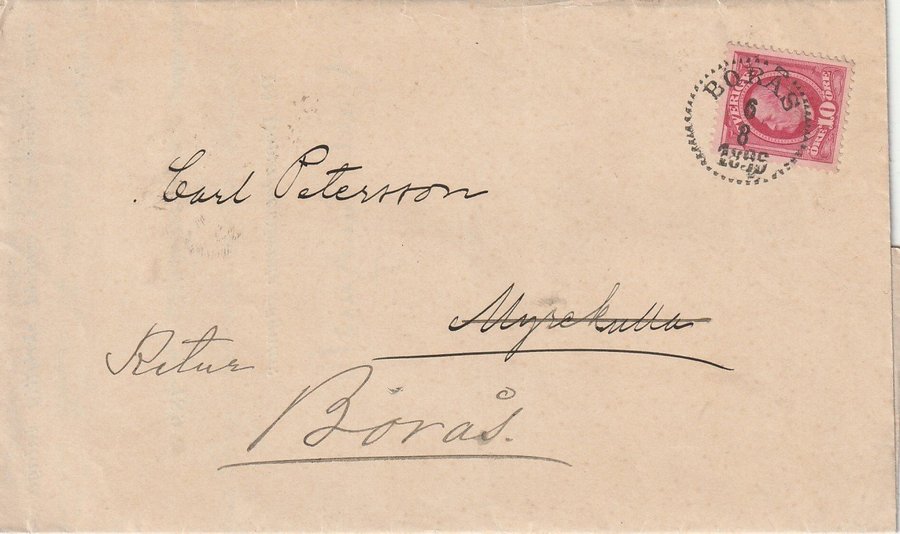 BORÅS
6
8
SVERIGE
10
ÖRE
ÖRE
Carl Petersson
Myrekulla
Retur
Borås.